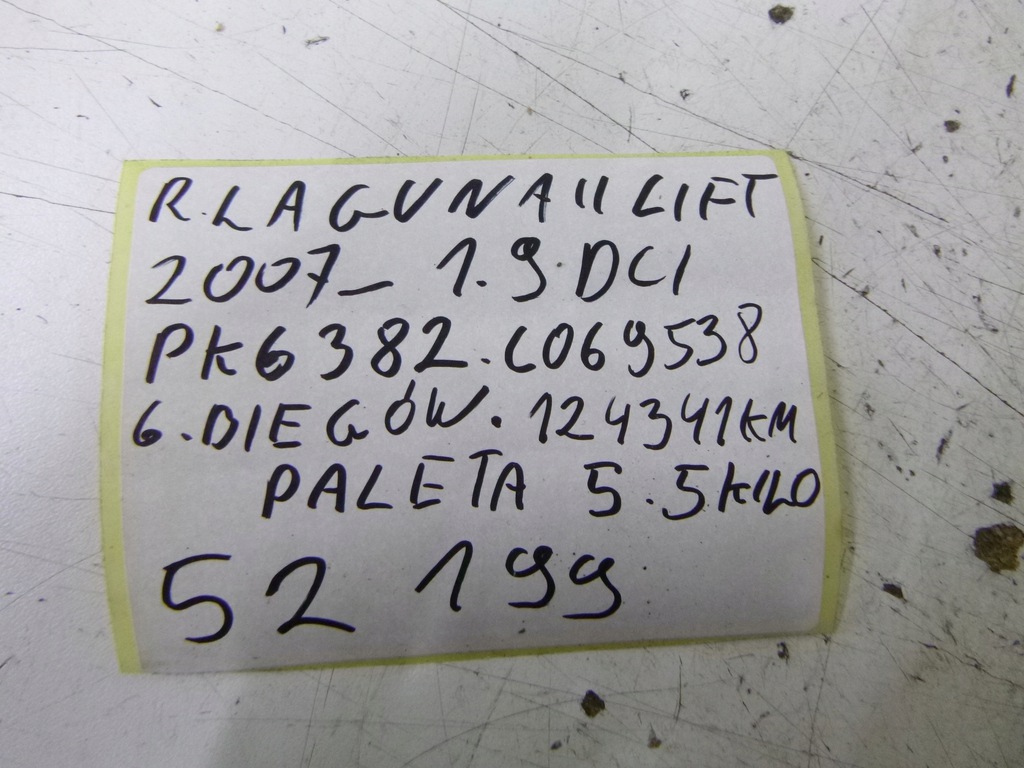 R.LAGUNA II LIFT
2007_ 1.9.DCI
PK6382.C069538
6.BIEGÓW. 124341KM
PALETA 5.5KILO
52 199